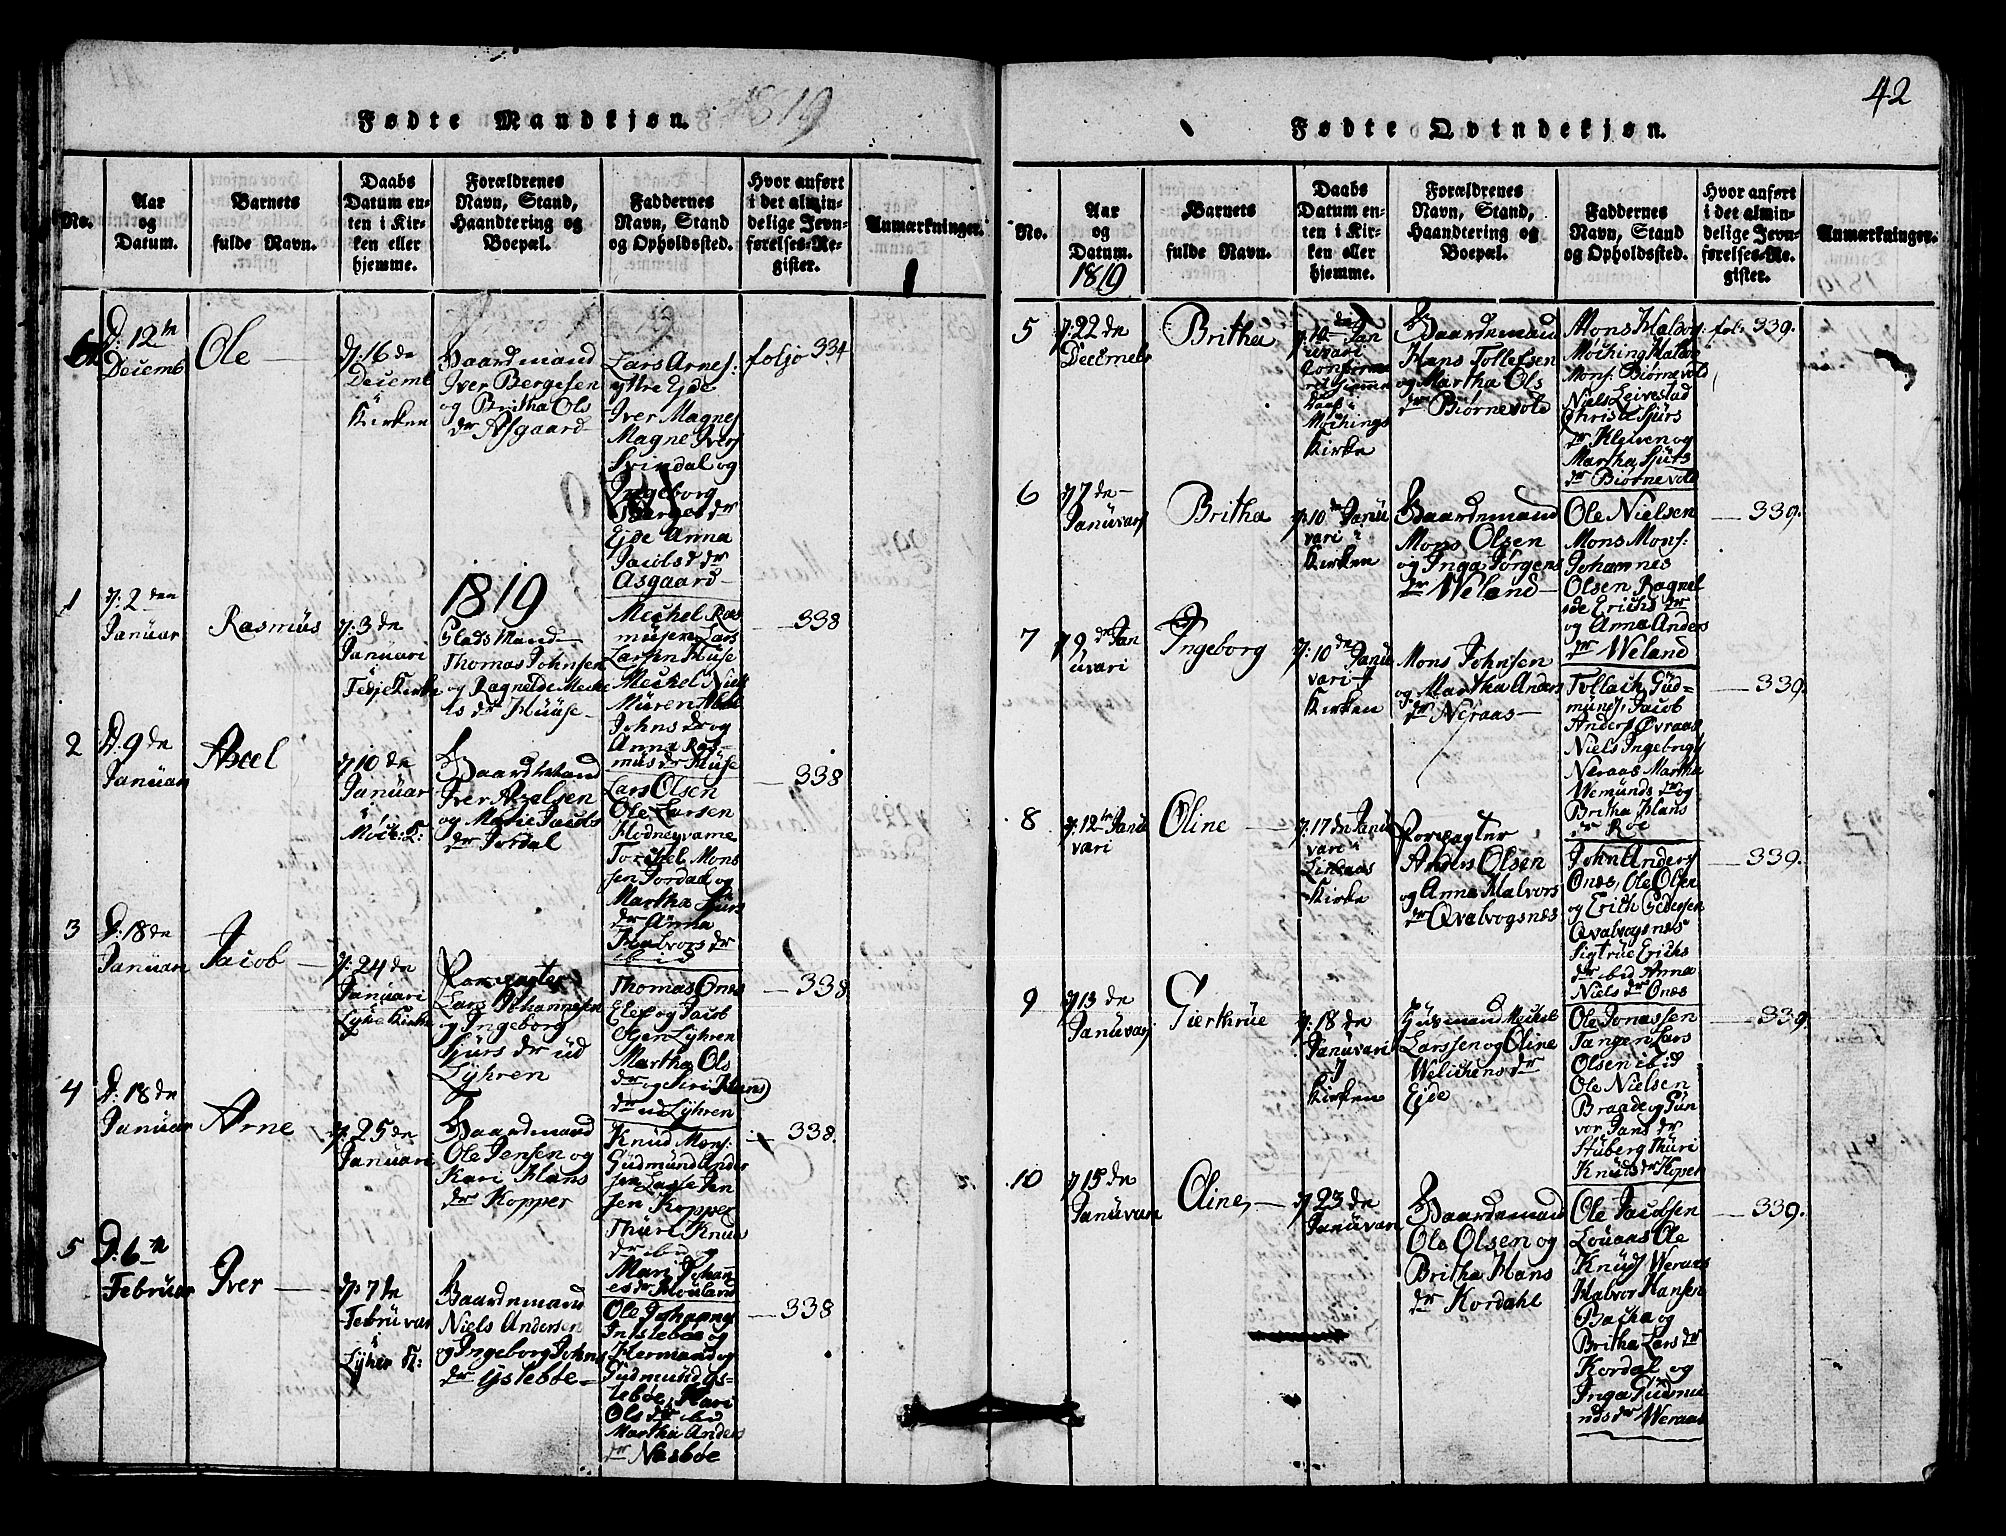 Fødte Mandkjøn. 1819
No.
Aar
og
Datum.
Barnets
fulde Navn.
Daabs
Datum en-
ten i Kir-
ken eller
hjemme.
Forældrenes
Navn, Stand,
Haandtering og
Boepæl.
Faddernes
Navn, Stand
og Opholdssted.
Hvor anført
i det almin-
delige Jevn-
førelses-Re-
gister.
Anmærkninger.
D: 12te
Decemb
Ole
d: 16 de
Decemb
i
Kirken
Gaardmand
Iver Bergesen
og Britha Ols
dr Asgaard
Lars Arnes:
yttre Ejde
Iver Magnes
Magne Ivers
Svindal og
Ingeborg
Berges dr
Ejde Anna
Jacobs dr
Asgaard
foljo 334
1819
1
d: 2 den
Januar
Rasmus
d: 3 de
Januari
i
Kirke
Mand
Thomas Johnsen
og Ragnelde Meche
ls dr Huuse
Mechel Ras
musen Lars
Larsen Huse
Mechel Niels
Muren
Johns dr og
Anna Ras-
mus dr Huse
338
2
D. 9 de
Januar
Axel
d 10 de
Januar
i
Gaardmand
Iver Axelsen
og Marie Jacobs
dr Jordal
Lars Olsen
Ole Larsen
Torchel Mons
sen Jordal og
Martha Sjurs
dr Anna
Halvors dr
ibid
338
3
D: 18 de
Januar
Jacob
d: 24 de
Januari
Lyhre Kirke
Forpagter
Lars Johannesen
og Ingeborg
Sjurs dr ud
Lyhren
Thomas Ones
og Jacob
Lyhren
Martha Ols
dr og Siri Hans
dr ud Lyhren
338
4
D: 18 de
Januar
Arne
d. 25 de
Januari
Gaardmand
Ole Jensen og
Kari Hans
dr Kopper
Knud Mons:
Gudmund Ander
sen Jen
sen Kopper
Thuri Knud
dr ibid og
Mari Johan
es dr
338.
5
D: 6te
Februar
Iver
d: 7 de
Februvar
i
Lyhre K:
Gaardemand
Niels Andersen
og Ingeborg Johns
dr Ystebøe
Ole Johanne
Inistebøe og
Hermand og
Gudmund Ys-
tebøe, Kari
Ols dr ibid
Martha Anders
dr Nasbøe
338
42
Fødte Qvindekjøn.
No.
Aar
og
Datum.
1819
Barnets
fulde Navn.
Daabs
Datum en-
ten i Kir-
ken eller
hjemme.
Forældrenes
Navn, Stand,
Haandtering og
Boepæl.
Faddernes
Navn, Stand
og Opholdssted.
Hvor anført
i det almin-
delige Jevn-
førelses-Re-
gister.
Anmærkninger.
5
d: 22 de
Decembr
Britha
d: 10 de Jan
uvari
Confirme
ret hiemme
Daab i
Mochings
Kirke
Gaardemand
Hans Tollefsen
og Martha Ols
dr Biørnevold
Mons Halvor
Moching Halvor
Mons. Biørnevold
Niels Leivestad
Christi Sjurs
dr Kleiven og
Martha Sjurs
dr Biørnevold
fol: 339.
6
d 7 de
Januvari
Britha
d. 10 de Janu
vari i
Kirken
Gaardemand
Mons Olsen
og Inga Jørgens
dr Weland
Ole Nielsen
Mons Mons:
Johannes
Olsen Ragnel
de Erichs dr
og Anna Anders
dr Weland
339.
7
d 9 de Jan
uvari
Ingeborg
d: 10 de Janu
vari i
Kirken
Mons Johnsen
og Martha Anders
dr Neraas
Tollach Gud-
munds, Jacob
Anders Øvraas
Niels Ingebrigt
Neraas Martha
Wemunds dr og
Britha Hans
dr Roe
339.
8
d. 12te Janu
vari
Oline
d: 17 de Janu
vari i
Lindaas
Kirke
Forpagter
Anders Olsen
og Anna Halvors
dr Qvalvogsnes
John Anders
Ones, Ole Olsen
og Erich Pedersen
Qvalvogsnes
Sigtrue Erichs
dr ibid Anna
Niels dr Ones
339.
9
d 13 de
Januvari
Gierthrue
d: 18 de
Januvari
i
Kirken
Huusmand Mechel
Larssen og Oline
Welichens dr
Ejde
Ole Jonassen
Tangen Lars
Olsen ibid
Ole Nielsen
Braade og Gun
vor Jans dr
Stuberg Thuri
Knuds dr Koper
339.
10
d 15 de
Januvari
Oline
d 23 de
Januvari
Gaardemand
Ole Olsen og
Britha Hans
dr Kordahl
Ole Jacobsen
Louaas Ole
Knuds Weraas
Halvor Hansen
Bacha og
Britha Lars dr
Kordal og
Inga Gudmu
nds dr Weraas
339.